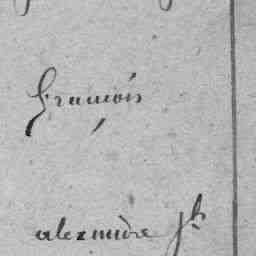 françois
alexandre jh